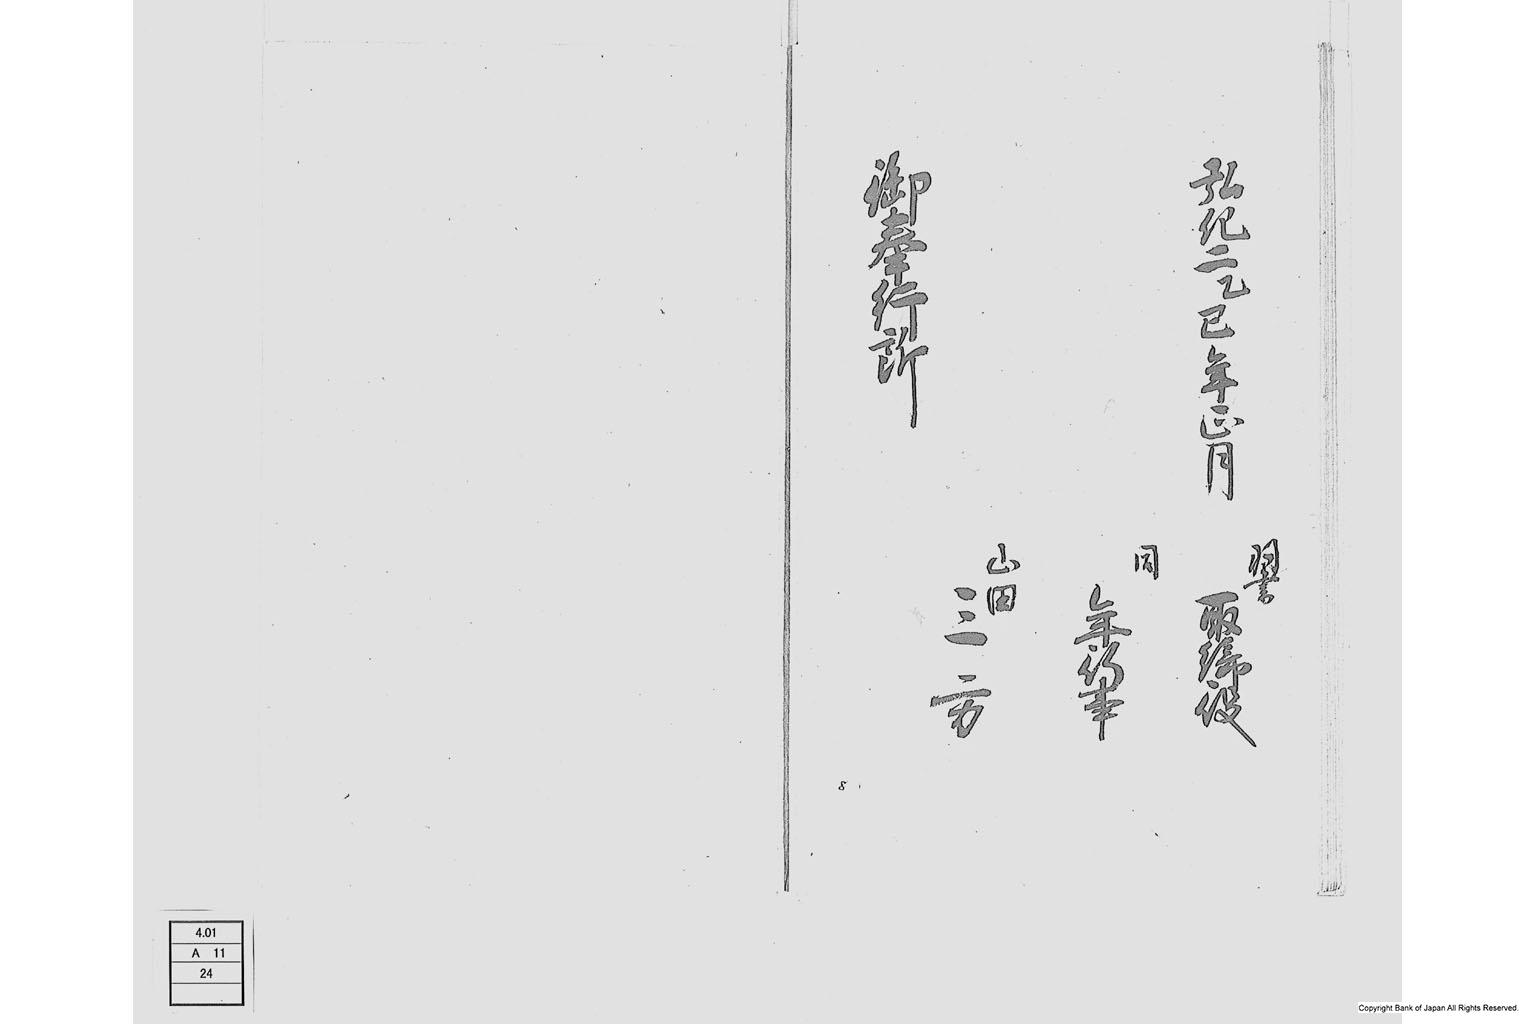 弘化二乙巳年正月
羽書
取締役
同
年行事
山田
三方
御奉行所
8
4.01
A 11
24
Copyright Bank of Japan All Rights Reserved.